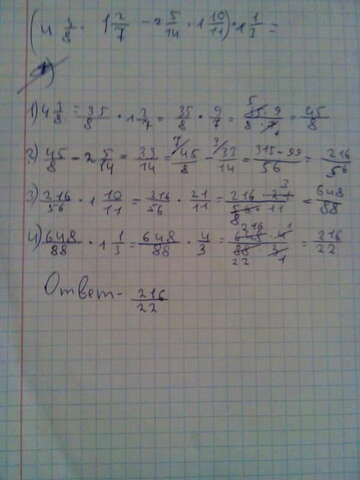 (4 3/8 · 1 2/7 - 2 5/14 · 1 10/11) · 1 1/3 =
1) 4 3/8 = 35/8 · 1 2/7 = 35/8 · 9/7 = 35·9/8·7 = 45/8
2) 45/8 - 2 5/14 = 33/14 = 45/8 - 33/14 = 315-99/56 = 216/56
3) 216/56 · 1 10/11 = 216/56 · 21/11 = 216·21/56·11 = 648/88
4) 648/88 · 1 1/3 = 648/88 · 4/3 = 648·4/88·3 = 216/22
Ответ - 216/22